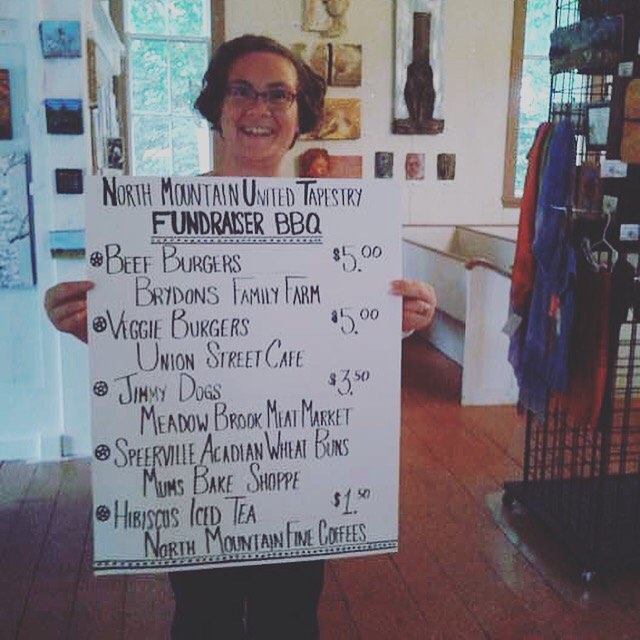 North Mountain United Tapestry
Fundraiser BBQ
Beef Burgers $5.00
Brydons Family Farm
Veggie Burgers $5.00
Union Street Cafe
Jimmy Dogs $3.50
Meadow Brook Meat Market
Speerville Acadian Wheat Buns
Mums Bake Shoppe
Hibiscus Iced Tea $1.50
North Mountain Fine Coffees